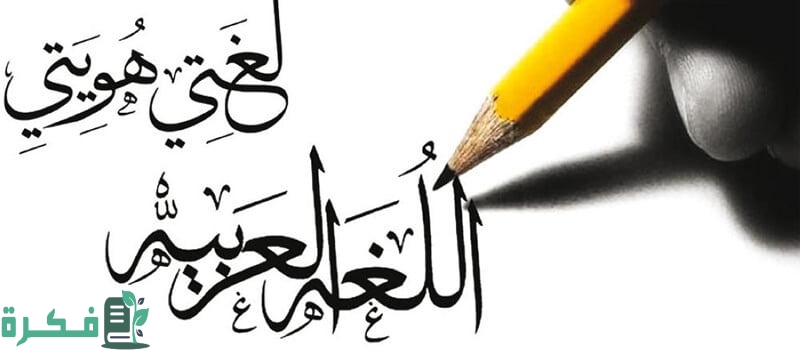 لغَتِي هُوِيَتِي
اللُغَه العَربيه
فكرة